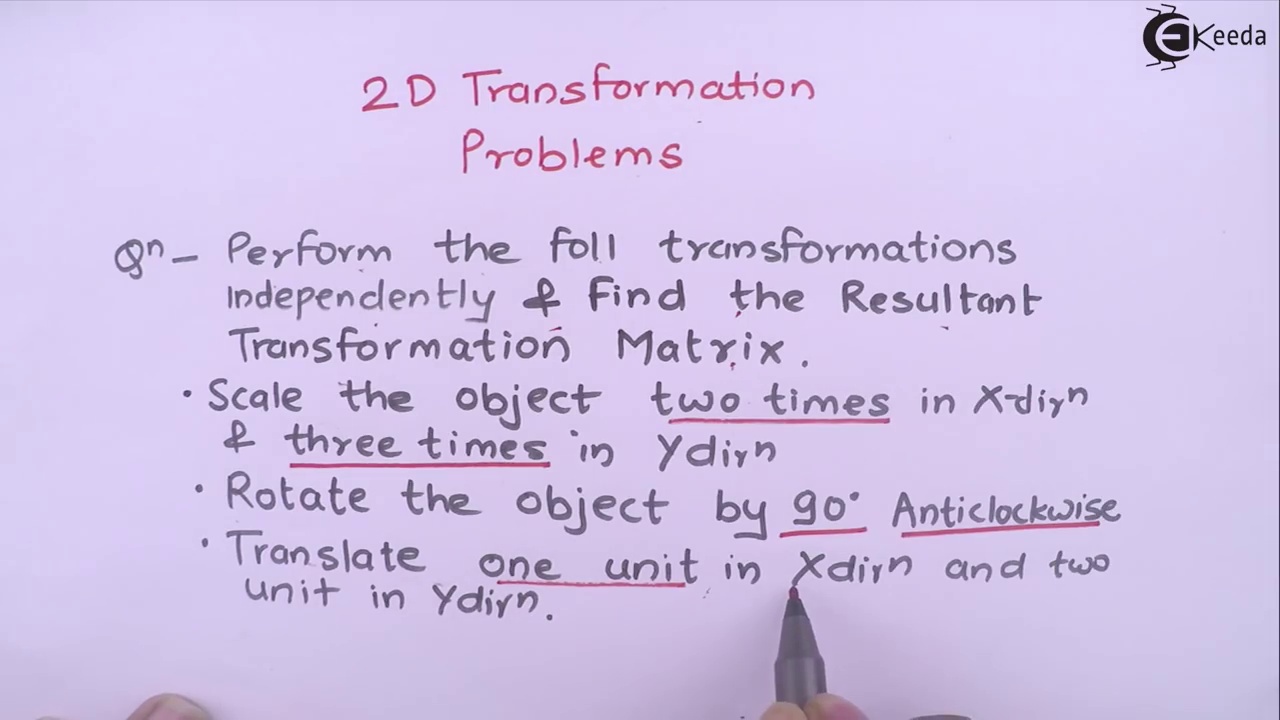 EKeeda
2D Transformation
Problems
Qn - Perform the foll transformations
independently & Find the Resultant
Transformation Matrix.
• Scale the object two times in X-dirn
& three times in Ydirn
• Rotate the object by 90° Anticlockwise
• Translate one unit in Xdirn and two
unit in Ydirn.